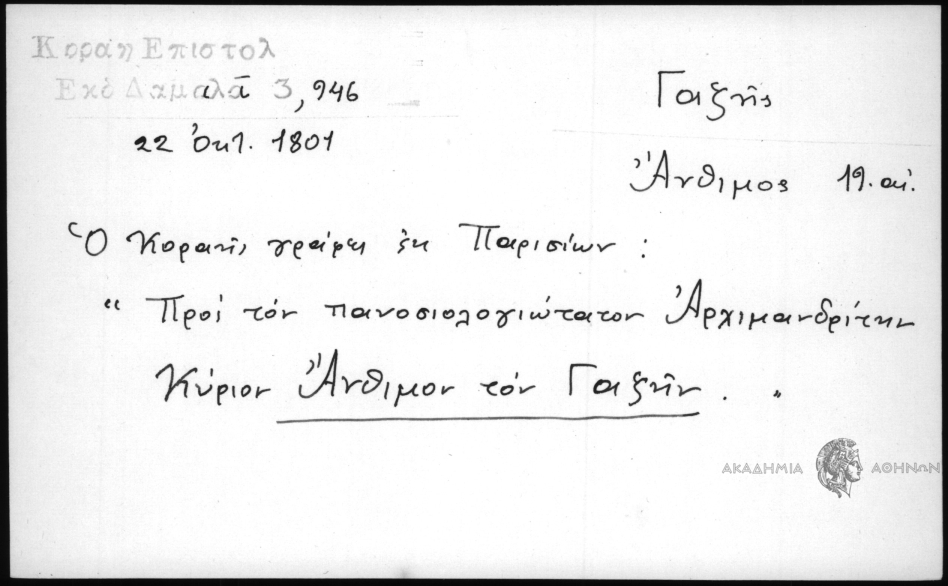 Κοραῆ Επιστολ
Εκδ Δαμαλᾶ 3, 946
22 Ὀκτ. 1801
Γαζῆς
Ἄνθιμος 19. αἰ.
Ὁ Κοραῆς γράφει ἐκ Παρισίων :
“ Πρός τόν πανοσιολογιώτατον Ἀρχιμανδρίτην
Κύριον Ἄνθιμον τόν Γαζῆν . „
ΑΚΑΔΗΜΙΑ ΑΘΗΝΩΝ